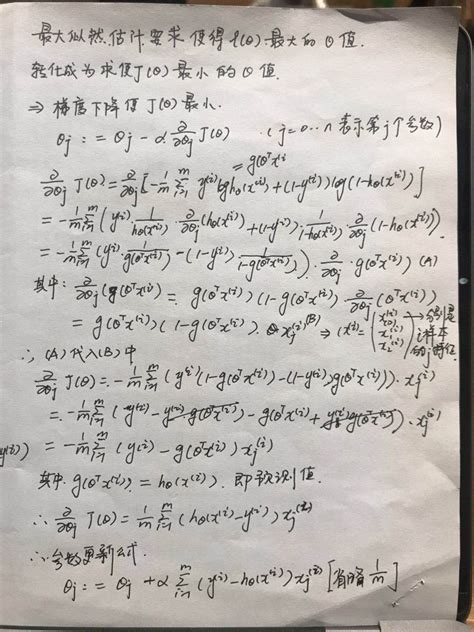 最大似然估计要求使得 l(θ) 最大的 θ 值.
转化成为求使 J(θ) 最小的 θ 值.
⇒ 梯度下降使 J(θ) 最小.
θj := θj - α ∂/∂θj J(θ) (j=0…n 表示第 j 个参数)
= g(θᵀx⁽ⁱ⁾
∂/∂θj J(θ) = ∂/∂θj [-1/m Σᵢ₌₁ᵐ y⁽ⁱ⁾ log hθ(x⁽ⁱ⁾) + (1-y⁽ⁱ⁾) log(1-hθ(x⁽ⁱ⁾))]
= -1/m Σᵢ₌₁ᵐ (y⁽ⁱ⁾ 1/hθ(x⁽ⁱ⁾) · ∂/∂θj (hθ(x⁽ⁱ⁾) + (1-y⁽ⁱ⁾) · 1/1-hθ(x⁽ⁱ⁾) · ∂/∂θj (1-hθ(x⁽ⁱ⁾))
= -1/m Σᵢ₌₁ᵐ (y⁽ⁱ⁾ · 1/g(θᵀx⁽ⁱ⁾) - (1-y⁽ⁱ⁾) 1/1-g(θᵀx⁽ⁱ⁾)) · ∂/∂θj · g(θᵀx⁽ⁱ⁾) (A)
其中: ∂/∂θj (g(θᵀx⁽ⁱ⁾) = g(θᵀx⁽ⁱ⁾) (1-g(θᵀx⁽ⁱ⁾) · ∂/∂θj (θᵀx⁽ⁱ⁾)
= g(θᵀx⁽ⁱ⁾) (1-g(θᵀx⁽ⁱ⁾) · xj⁽ⁱ⁾ (B) ⇒ (x⁽ⁱ⁾ = (x₀⁽ⁱ⁾ x₁⁽ⁱ⁾ x₂⁽ⁱ⁾) → 分别是
i 样本
的 j 特征
∴ (A) 代入 (B) 中
∂/∂θj J(θ) = -1/m Σᵢ₌₁ᵐ (y⁽ⁱ⁾(1-g(θᵀx⁽ⁱ⁾) - (1-y⁽ⁱ⁾) g(θᵀx⁽ⁱ⁾)) · xj⁽ⁱ⁾
= -1/m Σᵢ₌₁ᵐ (y⁽ⁱ⁾ - y⁽ⁱ⁾ · g(θᵀx⁽ⁱ⁾) - g(θᵀx⁽ⁱ⁾) + y⁽ⁱ⁾ g(θᵀx⁽ⁱ⁾)) · xj⁽ⁱ⁾
y⁽ⁱ⁾) = -1/m Σᵢ₌₁ᵐ (y⁽ⁱ⁾ - g(θᵀx⁽ⁱ⁾) xj⁽ⁱ⁾
其中 g(θᵀx⁽ⁱ⁾) = hθ(x⁽ⁱ⁾) 即预测值.
∴ ∂/∂θj J(θ) = 1/m Σᵢ₌₁ᵐ (hθ(x⁽ⁱ⁾) - y⁽ⁱ⁾) xj⁽ⁱ⁾
∴ 参数更新公式.
θj := θj + α Σᵢ₌₁ᵐ (y⁽ⁱ⁾ - hθ(x⁽ⁱ⁾)) xj⁽ⁱ⁾ [省略 1/m]